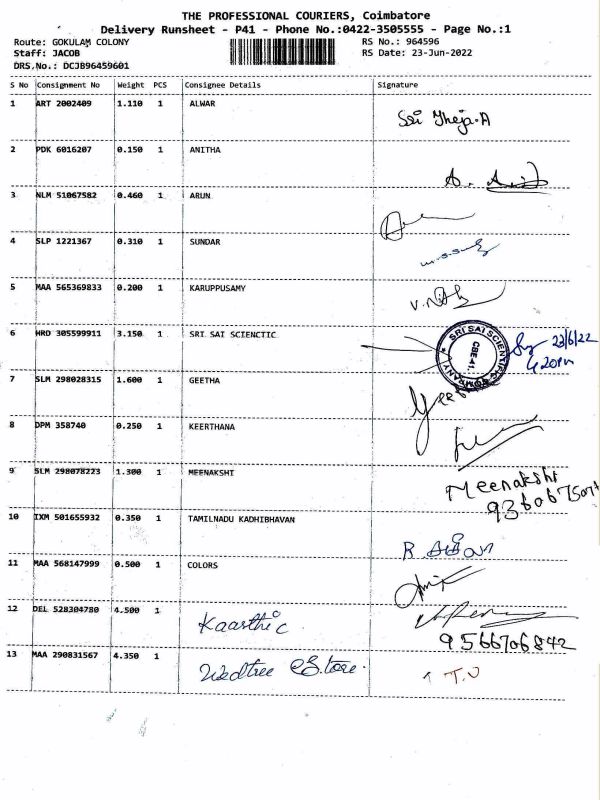 THE PROFESSIONAL COURIERS, Coimbatore
Delivery Runsheet - P41 - Phone No.:0422-3505555 - Page No.:1
Route: GOKULAM COLONY RS No.: 964596
Staff: JACOB RS Date: 23-Jun-2022
DRS.No.: DCJB96459601
S No Consignment No Weight PCS Consignee Details Signature
1 ART 2002409 1.110 1 ALWAR
Sai Theja.A
2 PDK 6016207 0.150 1 ANITHA
3 NLM 51067582 0.460 1 ARUN
4 SLP 1221367 0.310 1 SUNDAR
5 MAA 565369833 0.200 1 KARUPPUSAMY
6 HRD 305599911 3.150 1 SRI SAI SCIENCTIC
SRI SAI SCIENTIFIC COMPANY
CBE-41.
23/6/22
4.20pm
7 SLM 298028315 1.600 1 GEETHA
8 DPM 358740 0.250 1 KEERTHANA
9 SLM 298078223 1.300 1 MEENAKSHI
Meenakshi
10 IXM 501655932 0.350 1 TAMILNADU KADHIBHAVAN
11 MAA 568147999 0.500 1 COLORS
12 DEL 528304780 4.500 1 Kaarthic
9566706842
13 MAA 290831567 4.350 1 Wedtree eStore.
T.V